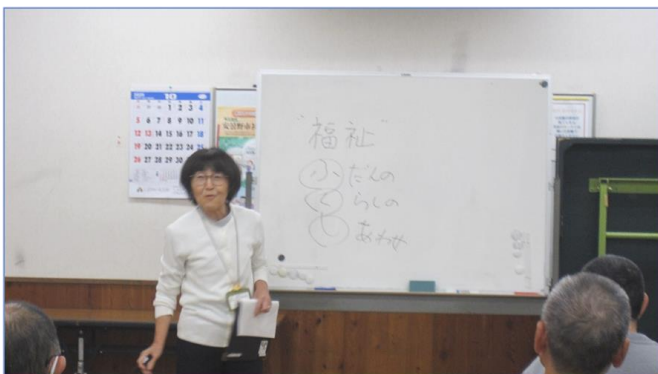 10
1 2 3 4
5 6 7 8 9 10 11
12 13 14 15 16 17 18
19 20 21 22 23 24 25
26 27 28 29 30
"福祉"
ふだんの
くらしの
しあわせ